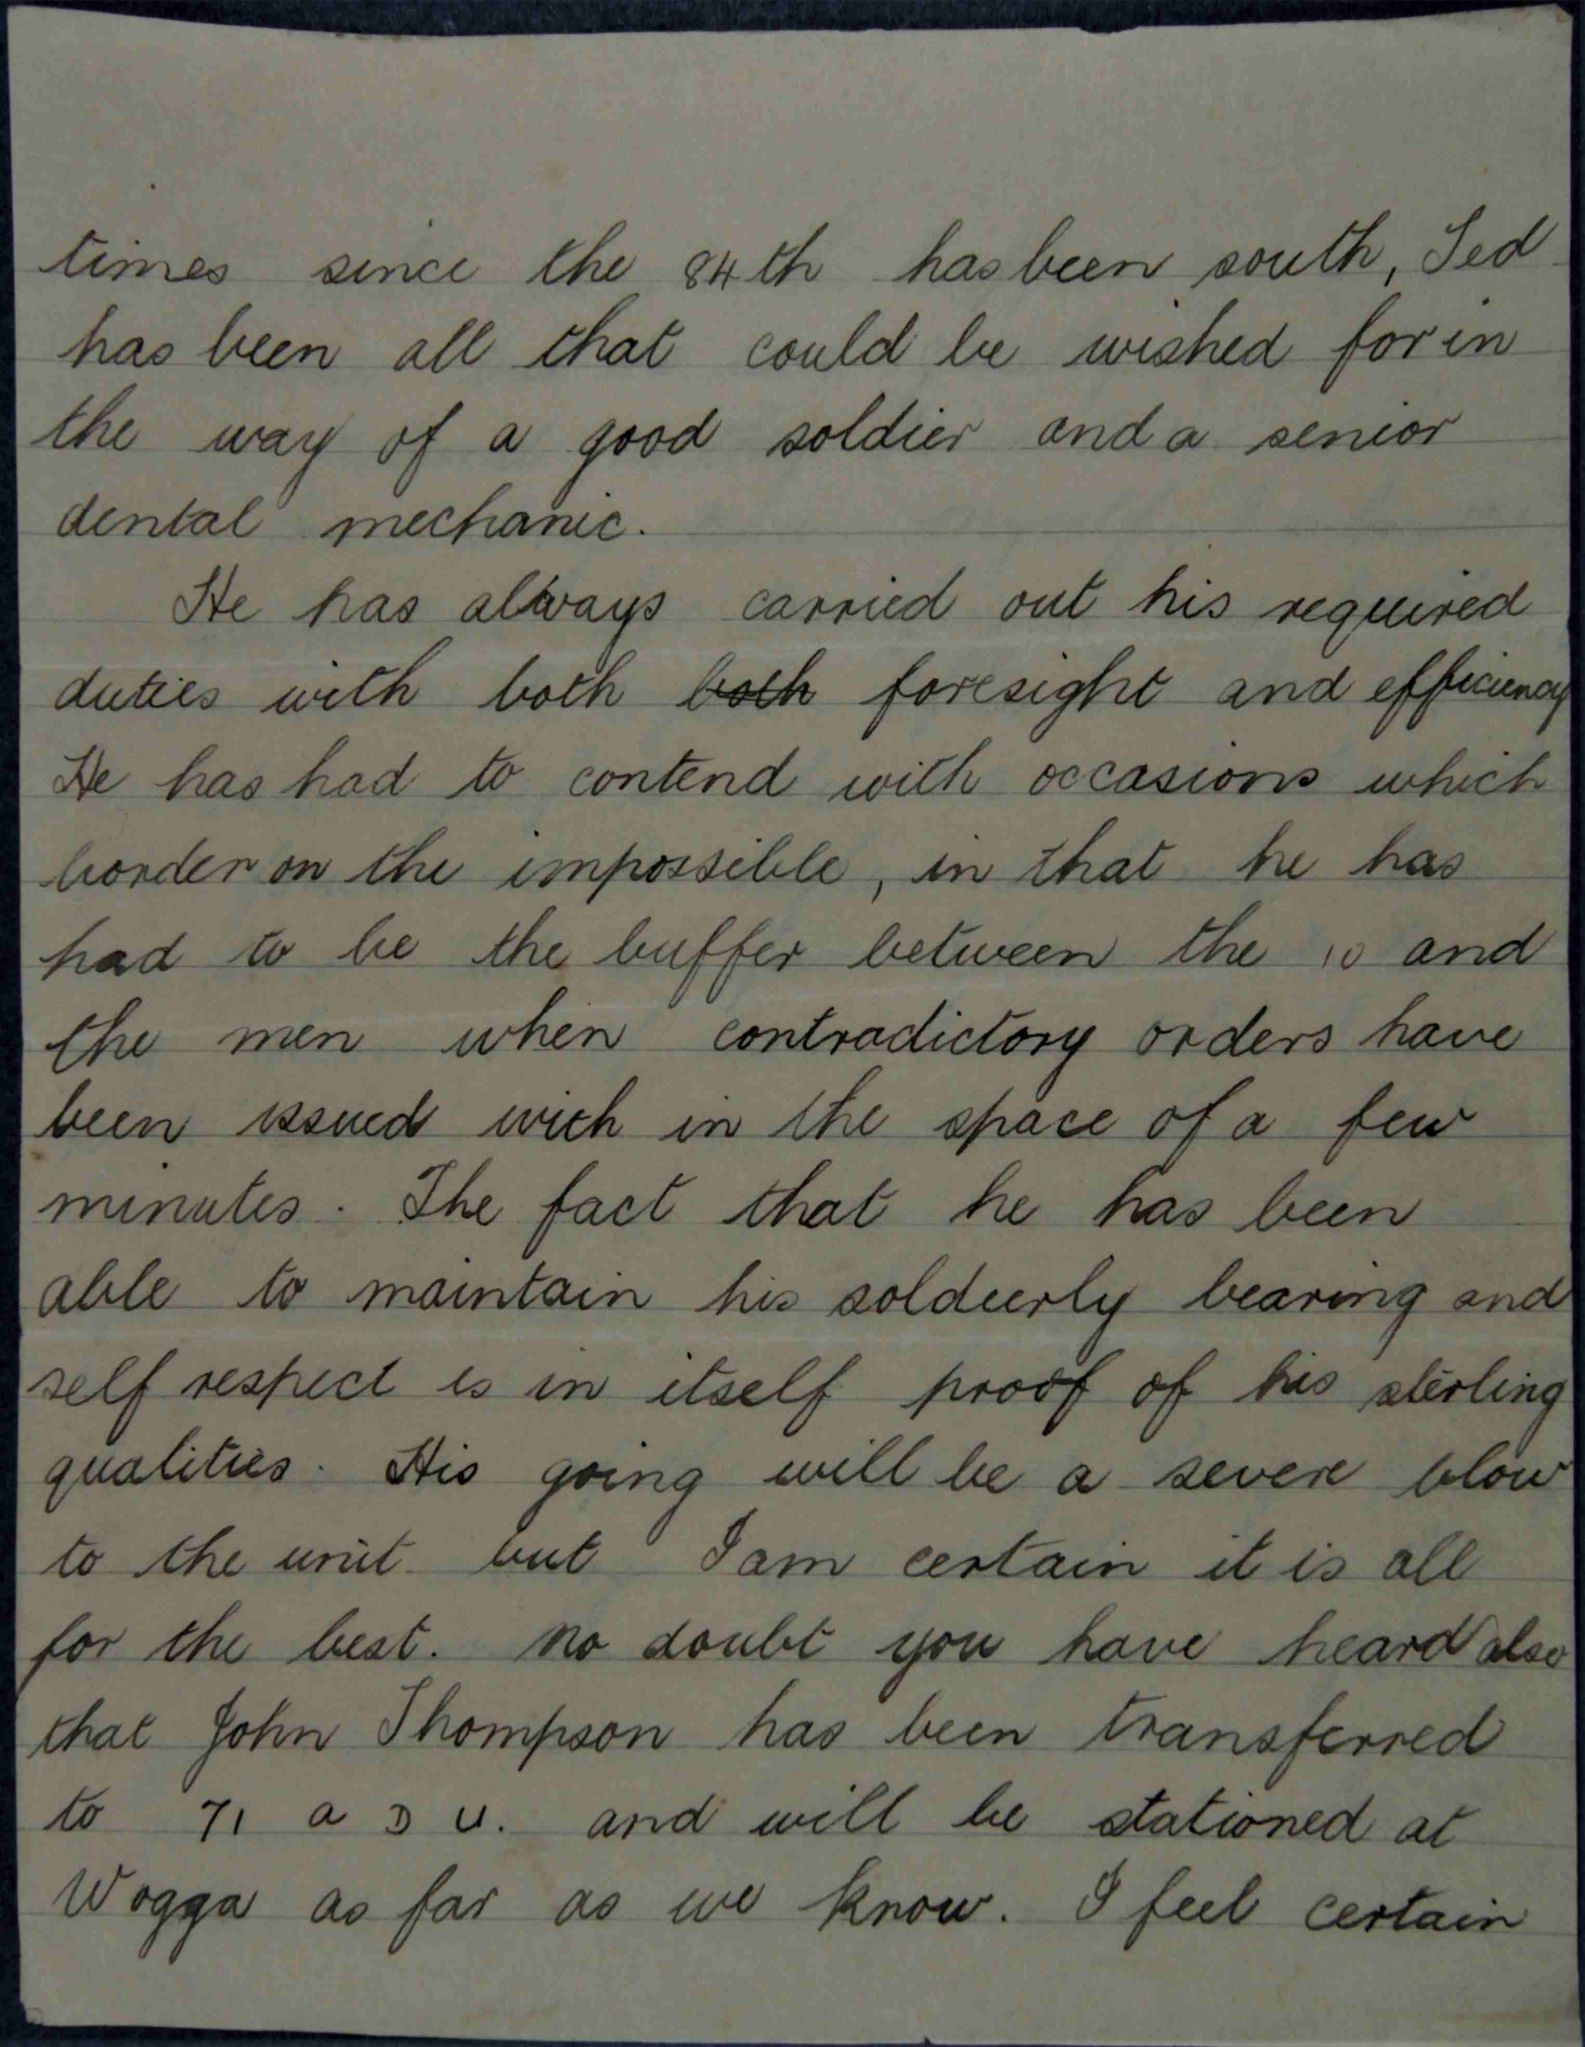 times since the 84th has been south, Ted
has been all that could be wished for in
the way of a good soldier and a senior
dental mechanic.
He has always carried out his required
duties with both both foresight and efficiency
He has had to contend with occasions which
border on the impossible, in that he has
had to be the buffer between the 10 and
the men when contradictory orders have
been issued with in the space of a few
minutes. The fact that he has been
able to maintain his soldierly bearing and
self respect is in itself proof of his sterling
qualities. His going will be a severe blow
to the unit but I am certain it is all
for the best. No doubt you have heard also
that John Thompson has been transferred
to 71 a D U. and will be stationed at
Wogga as far as we know. I feel certain